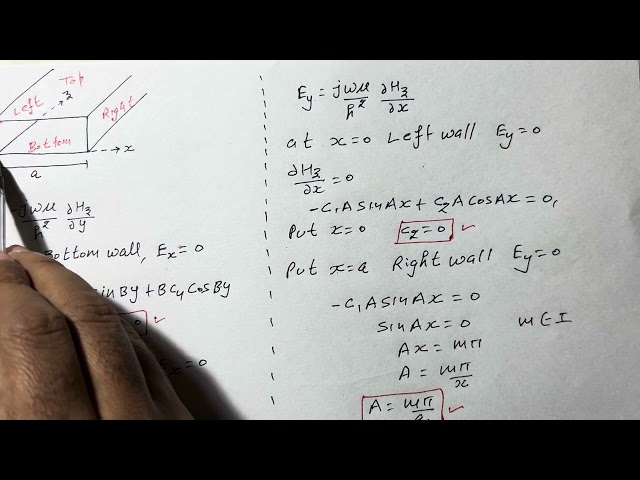 Top
Left
z
Right
Bottom
x
a
-jωμ/h² ∂Hz/∂y
Bottom wall, Ex=0
sinBy + Bc₄CosBy
Ex=0
Ey = jωμ/h² ∂Hz/∂x
at x=0 Left wall Ey=0
∂Hz/∂x = 0
-C₁A sinAx + C₂A cosAx = 0,
Put x=0 C₂=0 ✓
Put x=a Right wall Ey=0
-C₁A sinAx = 0
sinAx = 0 m∈I
Ax = mπ
A = mπ/x
A = mπ/ ✓